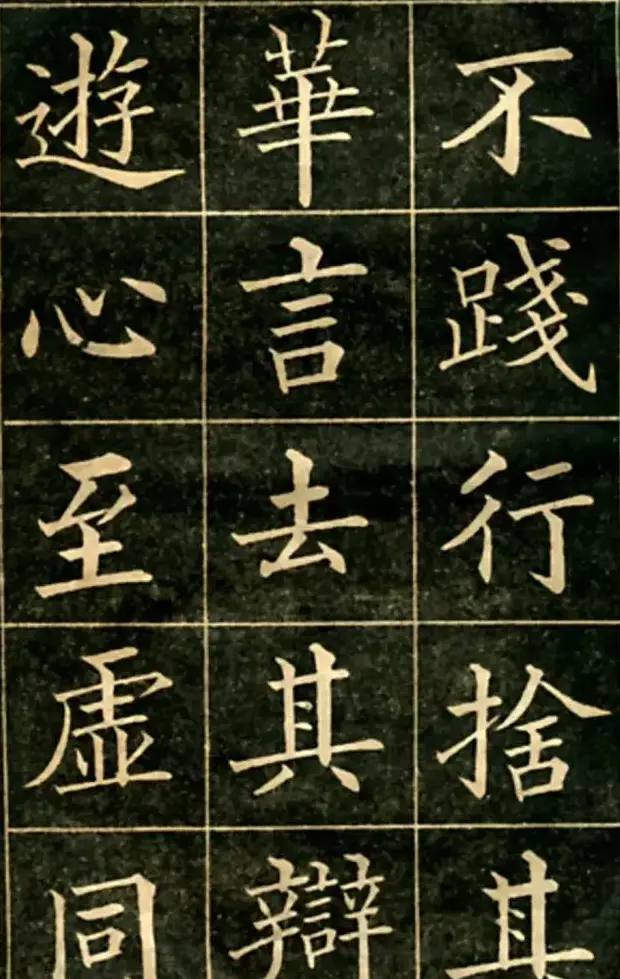 不踐行捨其
華言去其辯
遊心至虛同